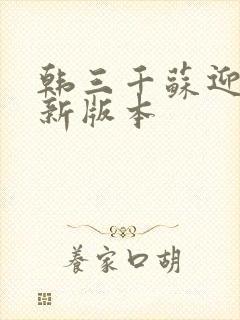 韩三千蘇迎
新版本
養家口胡